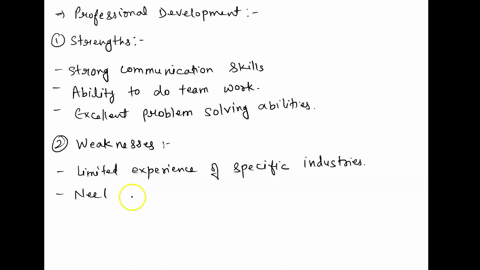 → Professional Development:-
① Strengths:-
- Strong communication skills
- Ability to do team work.
- Excellent problem solving abilities.
② Weaknesses:-
- Limited experience of specific industries.
- Neel